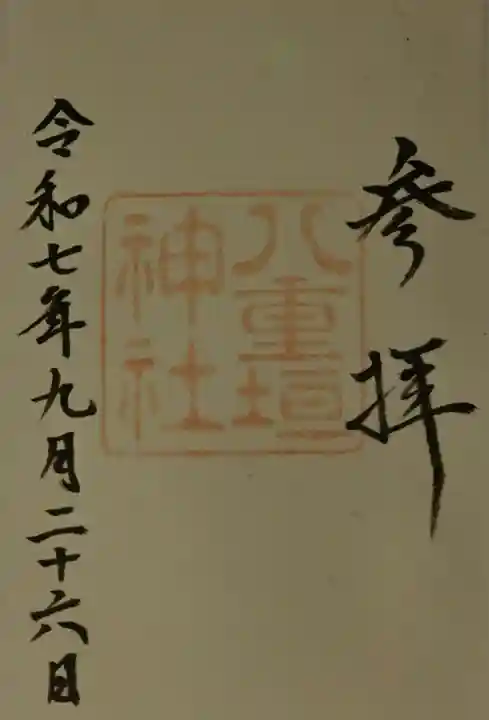 参拝
八重垣
神社
令和七年九月二十六日